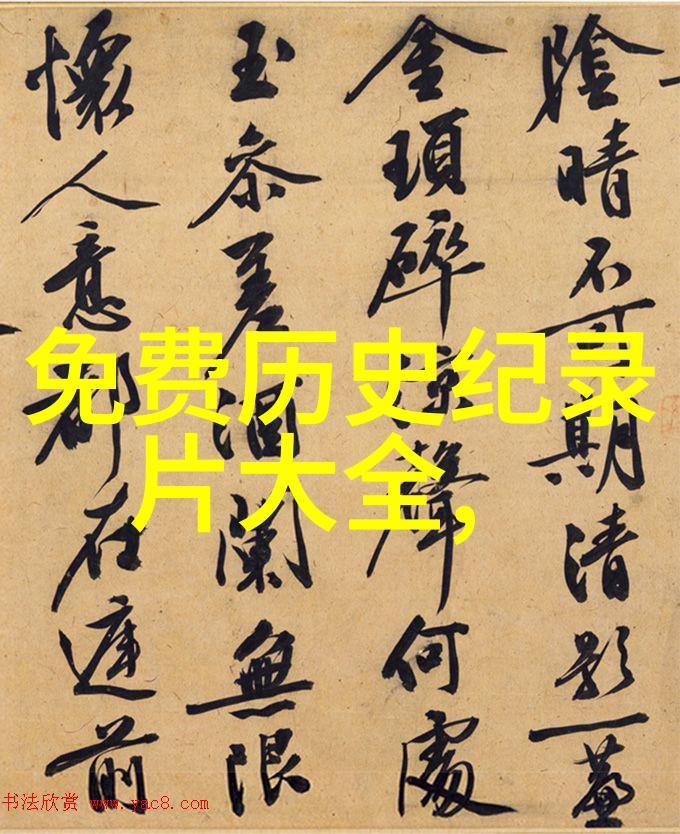 陰晴不可期清影一
金瑣碎涼聲何處
玉参差酒闌無限
懷人意都在庭前
免费历史纪录
片大全,
书法欣赏 www.yac8.com